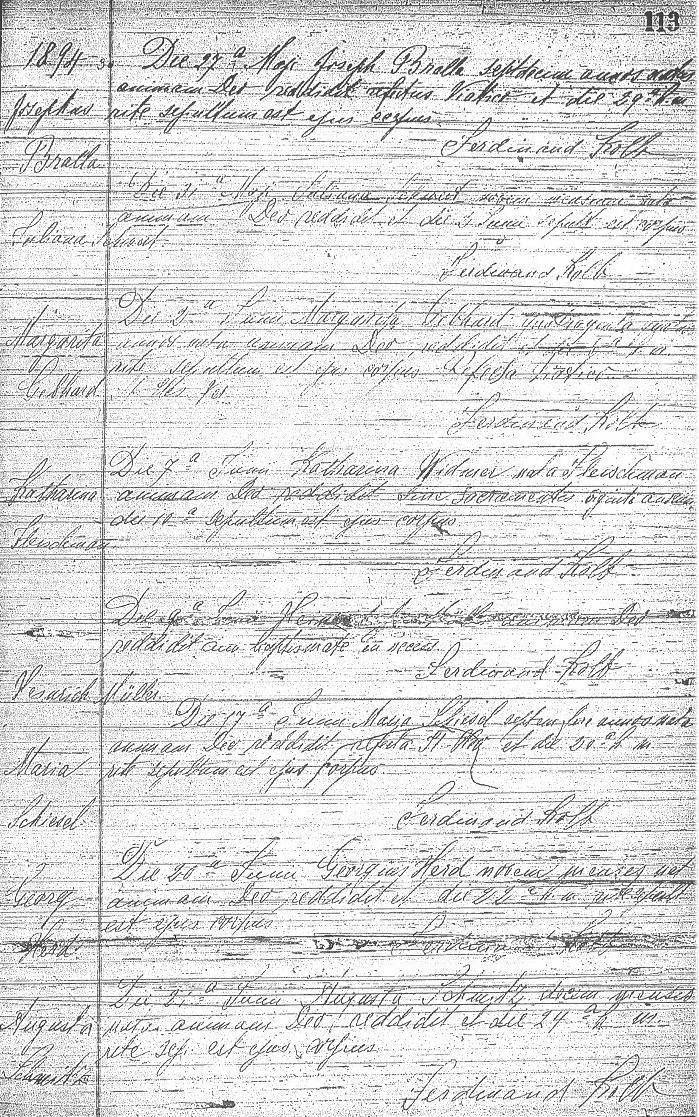 113
1894
Josephus
Bralla
Die 27ª Maji Joseph Bralla septdecim annos natus
animam Deo reddidit refectus Viatico et die 29ª h. m.
rite sepultum est ejus corpus.
Ferdinand Kolb
Juliana
Die 31ª Maji Juliana novem mensium nata
animam Deo reddidit et die 2 Juni sepult est corpus
Ferdinand Kolb
Margarita
Gebhard
Die 2ª Juni Margarita Gebhard
annos nata animam Deo reddidit et h. m.
rite sepultum est ejus corpus refecta Viatico
Ferdinand Kolb
Katharina
Fleischman
Die 7ª Juni Katharina Widmer nata Fleischman
animam Deo reddidit sine Sacramentis
die 10ª sepultum est ejus corpus
Ferdinand Kolb
Heinrich Müller
Die 9ª Juni Müller animam Deo
reddidit cum baptismate in necess.
Ferdinand Kolb
Maria
Schiesel
Die 17ª Juni Maria Schiesel septem annos nata
animam Deo reddidit refecta et die 20ª h. m
rite sepultum est ejus corpus.
Ferdinand Kolb
Georg
Herd
Die 20ª Juni Georgius Herd novem menses nat
animam Deo reddidit et die 22ª h. m. rite sepult
est ejus corpus
Ferdinand Kolb
Augusta
Schmitz
Die 21ª Juni Augusta Schmitz decem menses
nata animam Deo reddidit et die 24ª h m
rite sep. est ejus corpus
Ferdinand Kolb